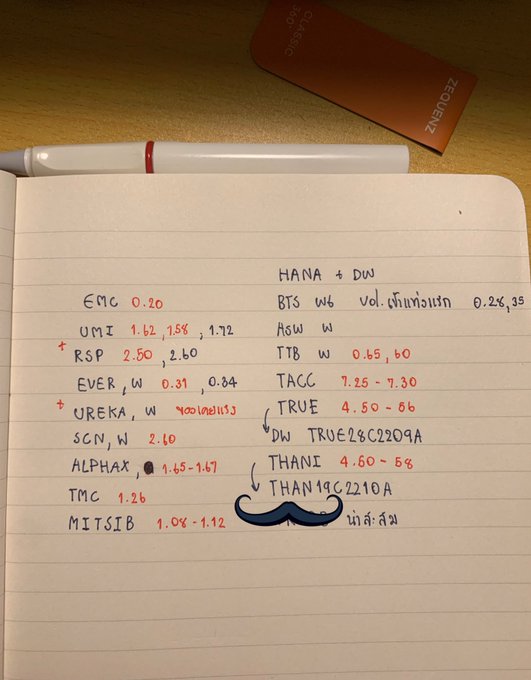 CLASSIC
360°
ZEQUENZ
EMC 0.20
UMI 1.62, 1.58, 1.72
+ RSP 2.50, 2.60
EVER, W 0.31, 0.34
+ UREKA, W
SCN, W 2.60
ALPHAX, 1.65-1.67
TMC 1.26
MITSIB 1.08-1.12
HANA + DW
BTS W6 Vol. เข้าแท่งแรก 0.28, 35
ASW W
TTB W 0.65, 60
TACC 7.25 - 7.30
TRUE 4.50 - 56
DW TRUE28C2209A
THANI 4.50 - 58
THAN19C2210A
น่าสะสม